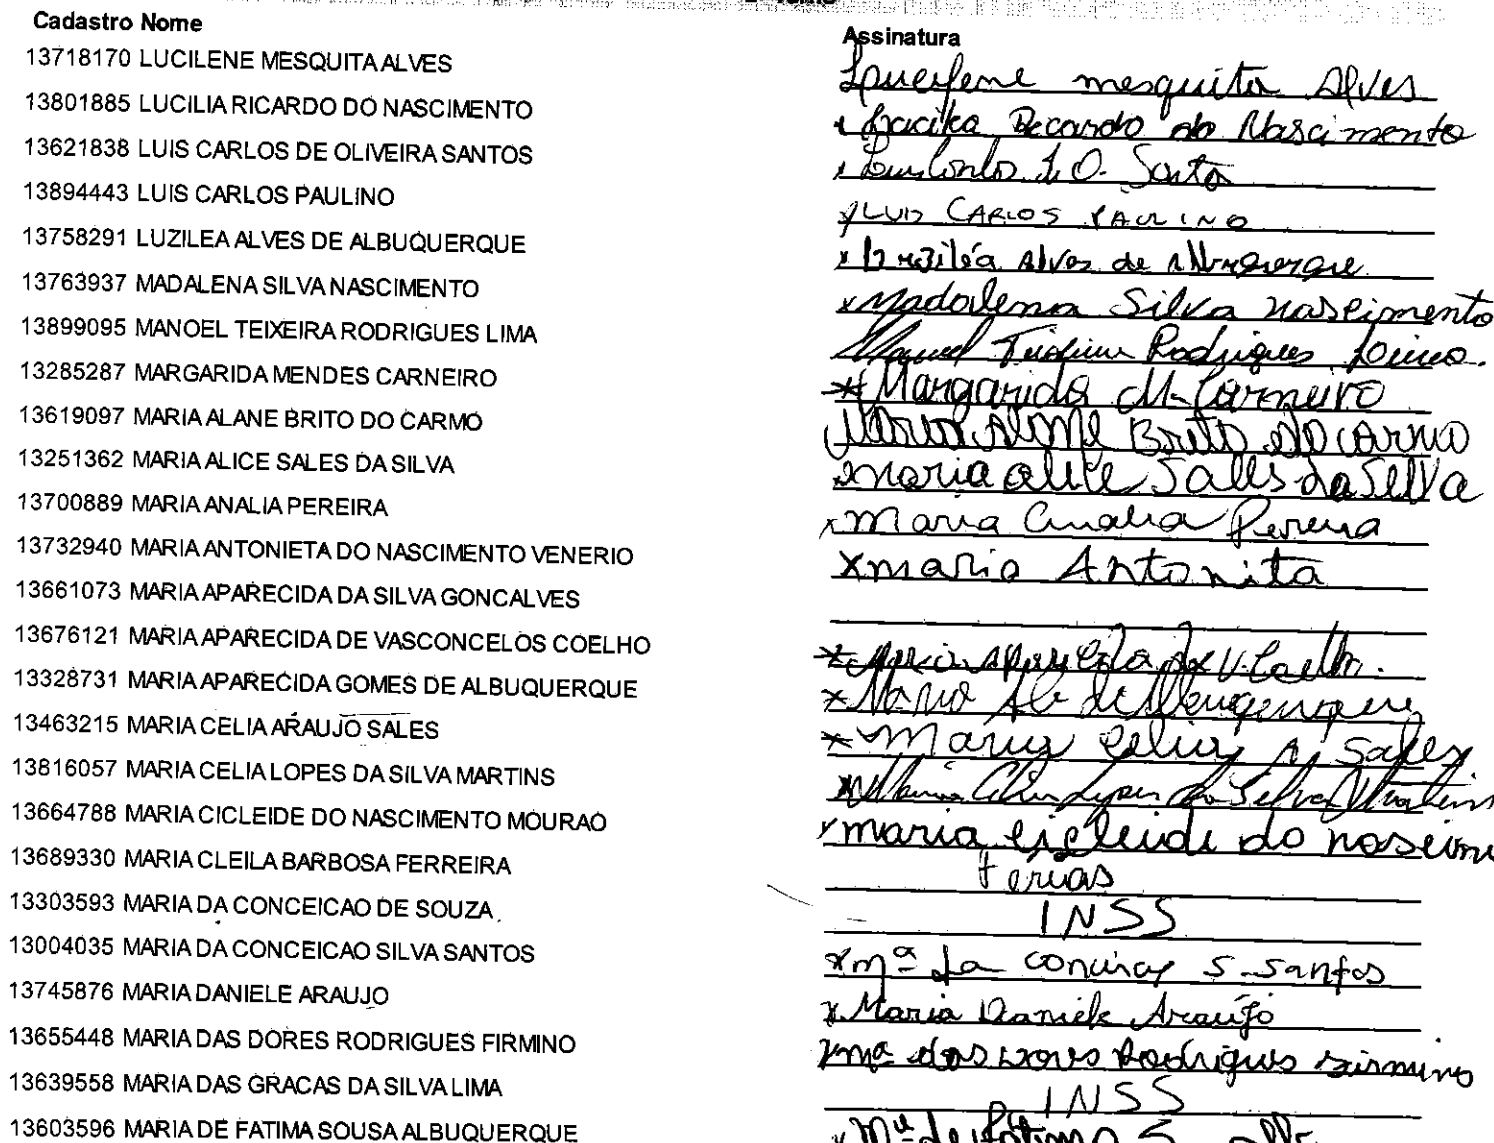 Cadastro Nome Assinatura
13718170 LUCILENE MESQUITA ALVES mesquita Alves
13801885 LUCILIA RICARDO DO NASCIMENTO do Nascimento
13621838 LUIS CARLOS DE OLIVEIRA SANTOS
13894443 LUIS CARLOS PAULINO LUIS CARLOS PAULINO
13758291 LUZILEA ALVES DE ALBUQUERQUE Alves de
13763937 MADALENA SILVA NASCIMENTO Madalena Silva nascimento
13899095 MANOEL TEIXEIRA RODRIGUES LIMA Rodrigues
13285287 MARGARIDA MENDES CARNEIRO Margarida M. Carneiro
13619097 MARIA ALANE BRITO DO CARMO Brito do Carmo
13251362 MARIA ALICE SALES DA SILVA maria alice
13700889 MARIA ANALIA PEREIRA Maria Analia Pereira
13732940 MARIA ANTONIETA DO NASCIMENTO VENERIO Xmaria Antonita
13661073 MARIA APARECIDA DA SILVA GONCALVES
13676121 MARIA APARECIDA DE VASCONCELOS COELHO
13328731 MARIA APARECIDA GOMES DE ALBUQUERQUE
13463215 MARIA CELIA ARAUJO SALES Maria Celia A Sales
13816057 MARIA CELIA LOPES DA SILVA MARTINS da Silva
13664788 MARIA CICLEIDE DO NASCIMENTO MOURAO maria do
13689330 MARIA CLEILA BARBOSA FERREIRA Ferias
13303593 MARIA DA CONCEICAO DE SOUZA INSS
13004035 MARIA DA CONCEICAO SILVA SANTOS mª da S. Santos
13745876 MARIA DANIELE ARAUJO Maria Daniele Araújo
13655448 MARIA DAS DORES RODRIGUES FIRMINO mª das
13639558 MARIA DAS GRACAS DA SILVA LIMA INSS
13603596 MARIA DE FATIMA SOUSA ALBUQUERQUE Mª de Fatima S.